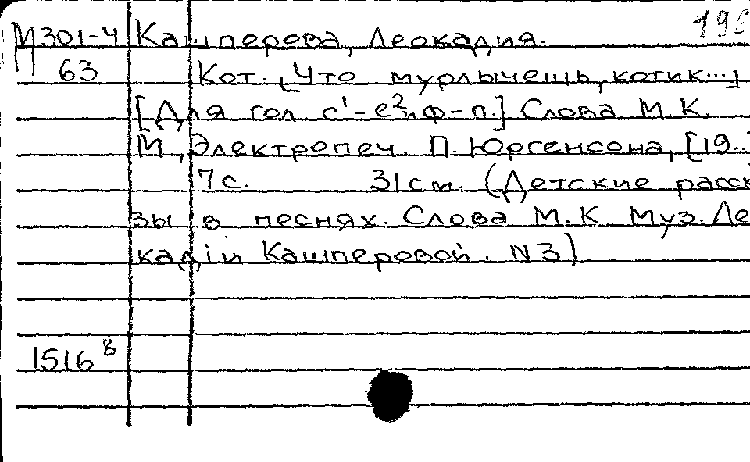 М301-4 Кашперова, Леокадия. 19
63 Кот. (Что мурлычешь, котик...)
[Для гол с¹-е², ф-п.] Слова М.К.
М., Электропеч. П. Юргенсона, [19..
7с. 31см. (Детские расск
зы в песнях. Слова М.К Муз. Ле
кадiи Кашперовой. N3)
1516 в